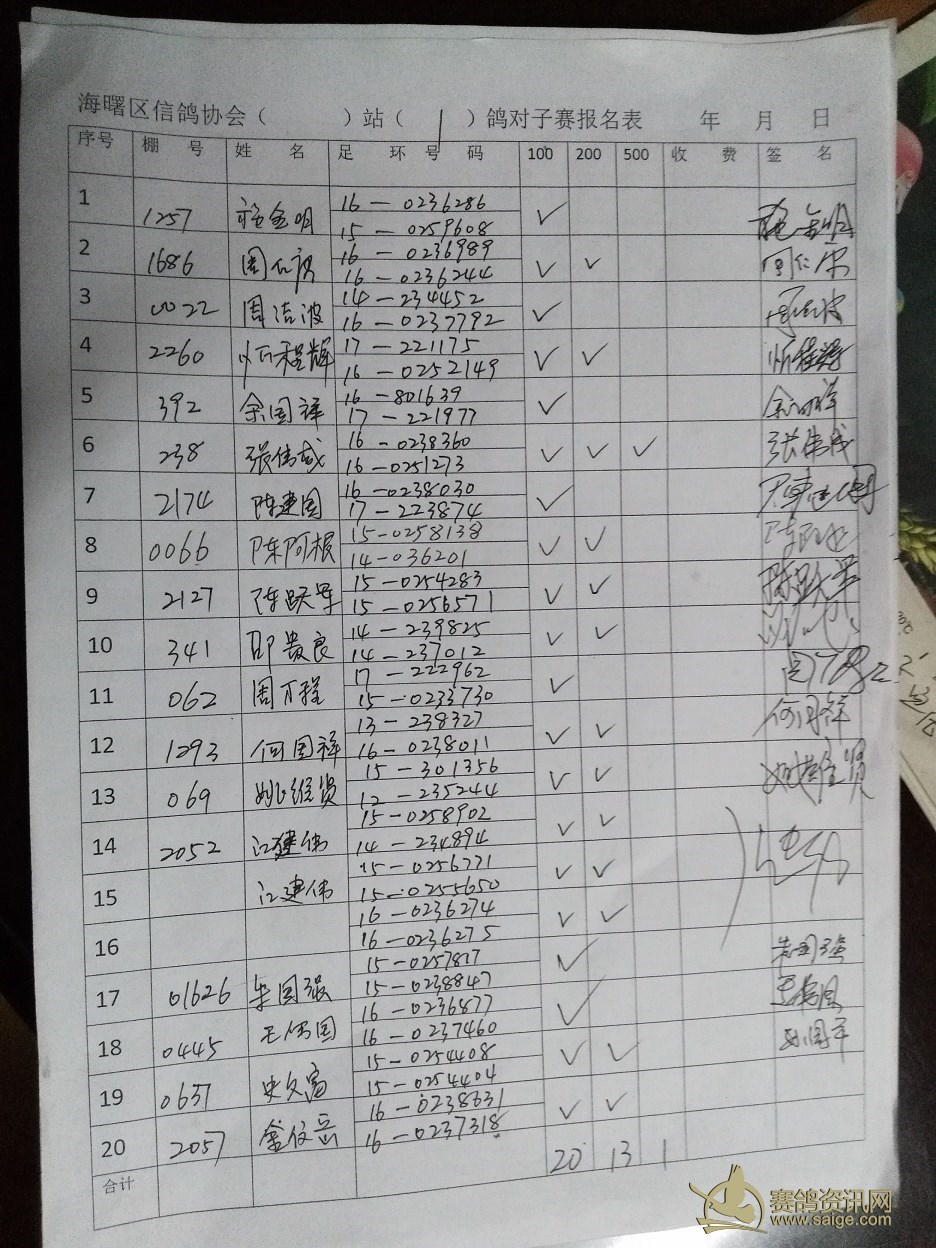 海曙区信鸽协会（ ）站（ ）鸽对子赛报名表 年 月 日
序号 棚号 姓名 足环号码 100 200 500 收费 签名
1 1257 施金明 16-0236286 ✓ 施金明
15-0259608
2 1686 周仁 16-0236989 ✓ ✓ 周仁
16-0236244
3 0022 周洁波 14-234452 ✓
16-0237792
4 2260 忻程辉 17-221175 ✓ ✓ 忻程辉
16-0252149
5 392 余国祥 16-801639 ✓ 余国祥
17-221977
6 238 张伟成 16-0238360 ✓ ✓ ✓ 张伟成
16-0251273
7 2174 陈建国 16-0238030 ✓ 陈建国
17-223874
8 0066 陈阿根 15-0258138 ✓ ✓
14-036201
9 2127 陈跃军 15-0254283 ✓ ✓ 陈跃军
15-0256571
10 341 邵贵良 14-239825 ✓ ✓
14-237012
11 062 周万程 17-222962 ✓
15-0233730
12 1293 何国祥 13-238327 ✓ ✓ 何国祥
16-0238011
13 069 姚维贤 15-301356 ✓ ✓ 姚维贤
12-235244
14 2052 江建伟 15-0258902 ✓ ✓
14-234894
15 江建伟 15-0256771 ✓ ✓
15-0255650
16 16-0236274 ✓ ✓
16-0236275
17 01626 朱国强 15-0257817 ✓ 朱国强
15-0238847
18 0445 王伟国 16-0236877 ✓
16-0237460
19 0637 史久富 15-0254408 ✓ ✓
15-0254404
20 2057 金仅岳 16-0238631 ✓ ✓
16-0237318
合计 20 13 1
赛鸽资讯网
www.saige.com